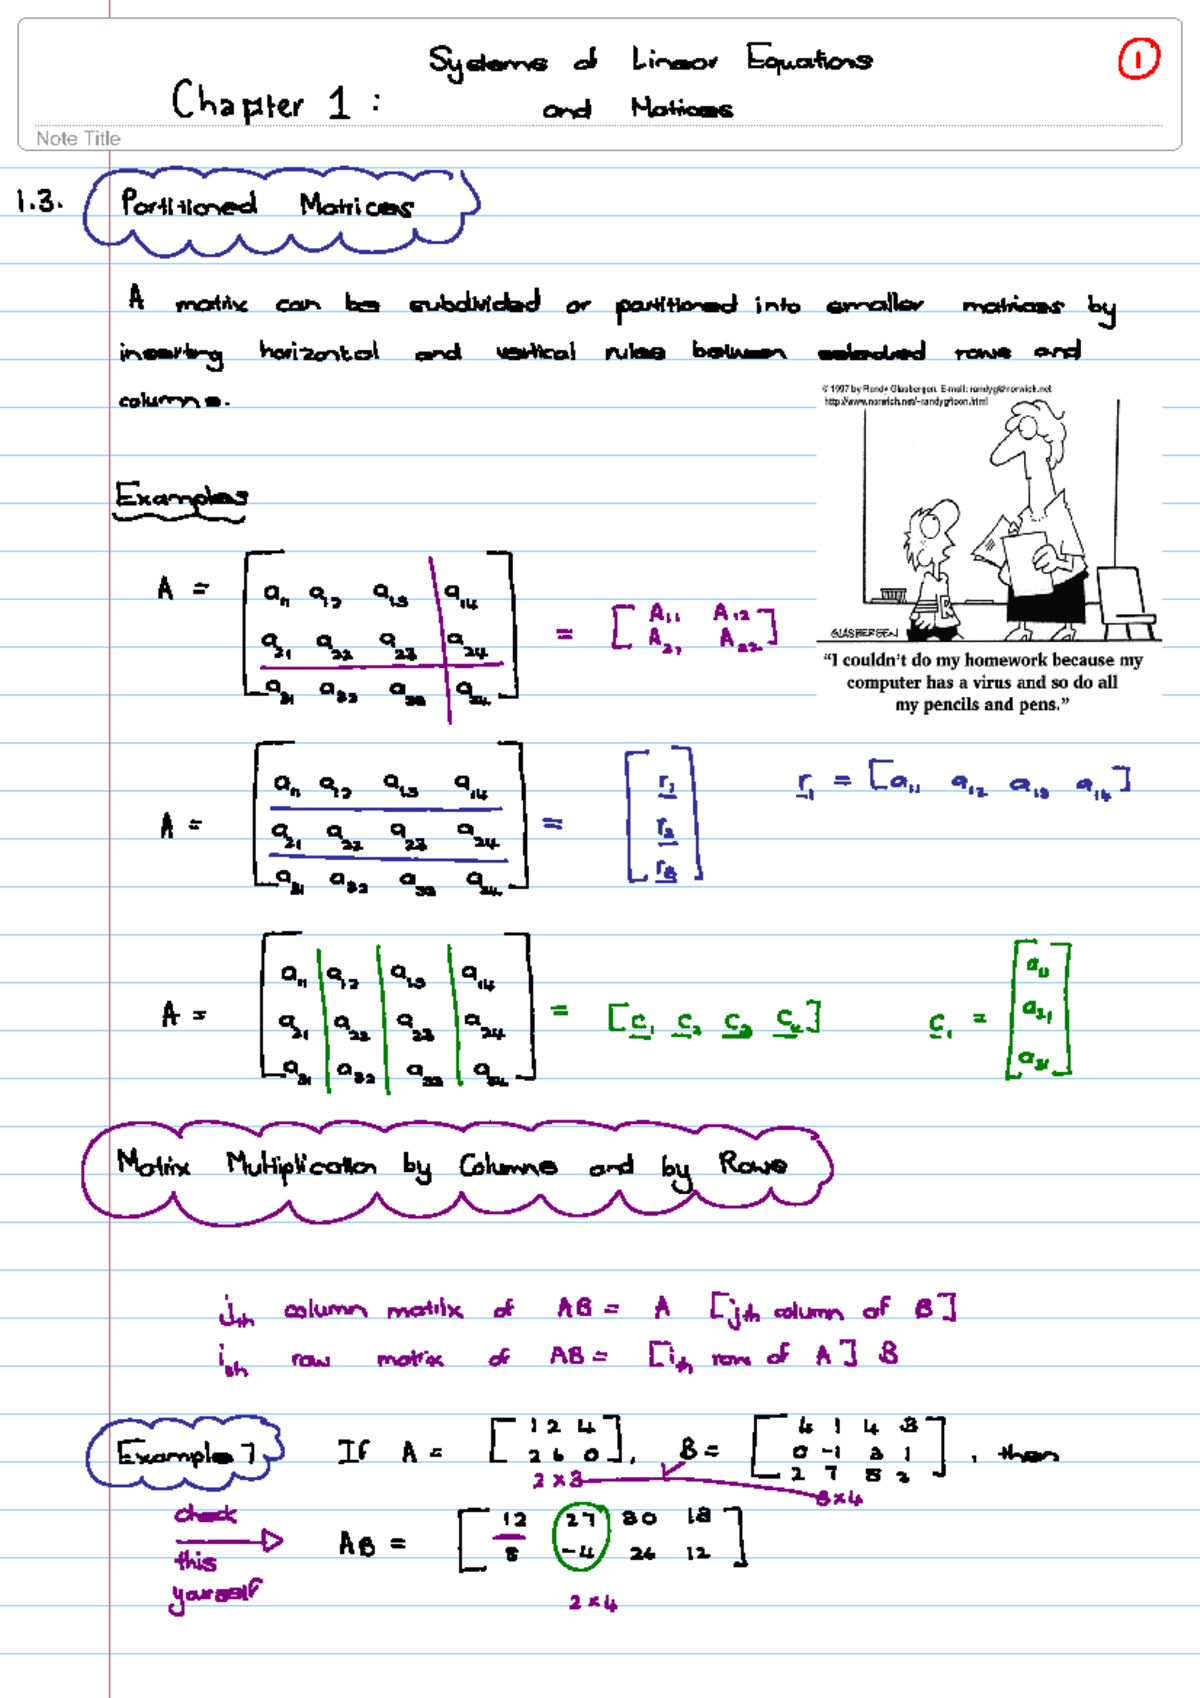 Systems of Linear Equations
Chapter 1 : and Matrices
1
Note Title
1.3. Partitioned Matrices
A matrix can be subdivided or partitioned into smaller matrices by
inserting horizontal and vertical rules between selected rows and
columns.
© 1997 by Randy Glasbergen. E-mail: randyg@norwich.net
http://www.norwich.net/~randyg/toon.html
GLASBERGEN
"I couldn't do my homework because my
computer has a virus and so do all
my pencils and pens."
Examples
A = [ a11 a12 a13 a14
a21 a22 a23 a24
a31 a32 a33 a34 ] = [ A11 A12
A21 A22 ]
A = [ a11 a12 a13 a14
a21 a22 a23 a24
a31 a32 a33 a34 ] = [ r1
r2
r3 ] r1 = [ a11 a12 a13 a14 ]
A = [ a11 a12 a13 a14
a21 a22 a23 a24
a31 a32 a33 a34 ] = [ c1 c2 c3 c4 ] c1 = [ a11
a21
a31 ]
Matrix Multiplication by Columns and by Rows
jth column matrix of AB = A [jth column of B]
ith row matrix of AB = [ith row of A] B
Example 7 If A = [ 1 2 4
2 6 0 ], B = [ 4 1 4 3
0 -1 3 1
2 7 5 2 ], then
2 x 3 3 x 4
check
this
yourself
AB = [ 12 27 30 13
8 -4 26 12 ]
2 x 4